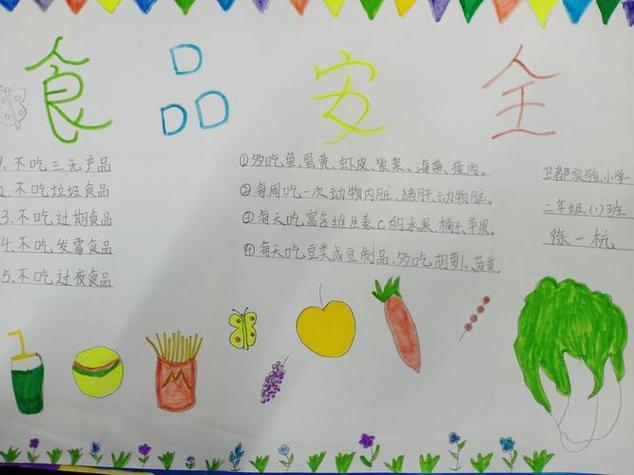 食品安全
1. 不吃三无产品
2. 不吃垃圾食品
3. 不吃过期食品
4. 不吃发霉食品
5. 不吃过夜食品
①多吃鱼、蛋黄、虾皮、紫菜、海带、瘦肉。
②每周吃一次动物内脏、猪肝、动物脑。
③每天吃富含维生素C的水果、橘子、苹果。
④每天吃豆类或豆制品、多吃胡萝卜、菠菜。
卫都实验小学
二年级(1)班
徐一杭